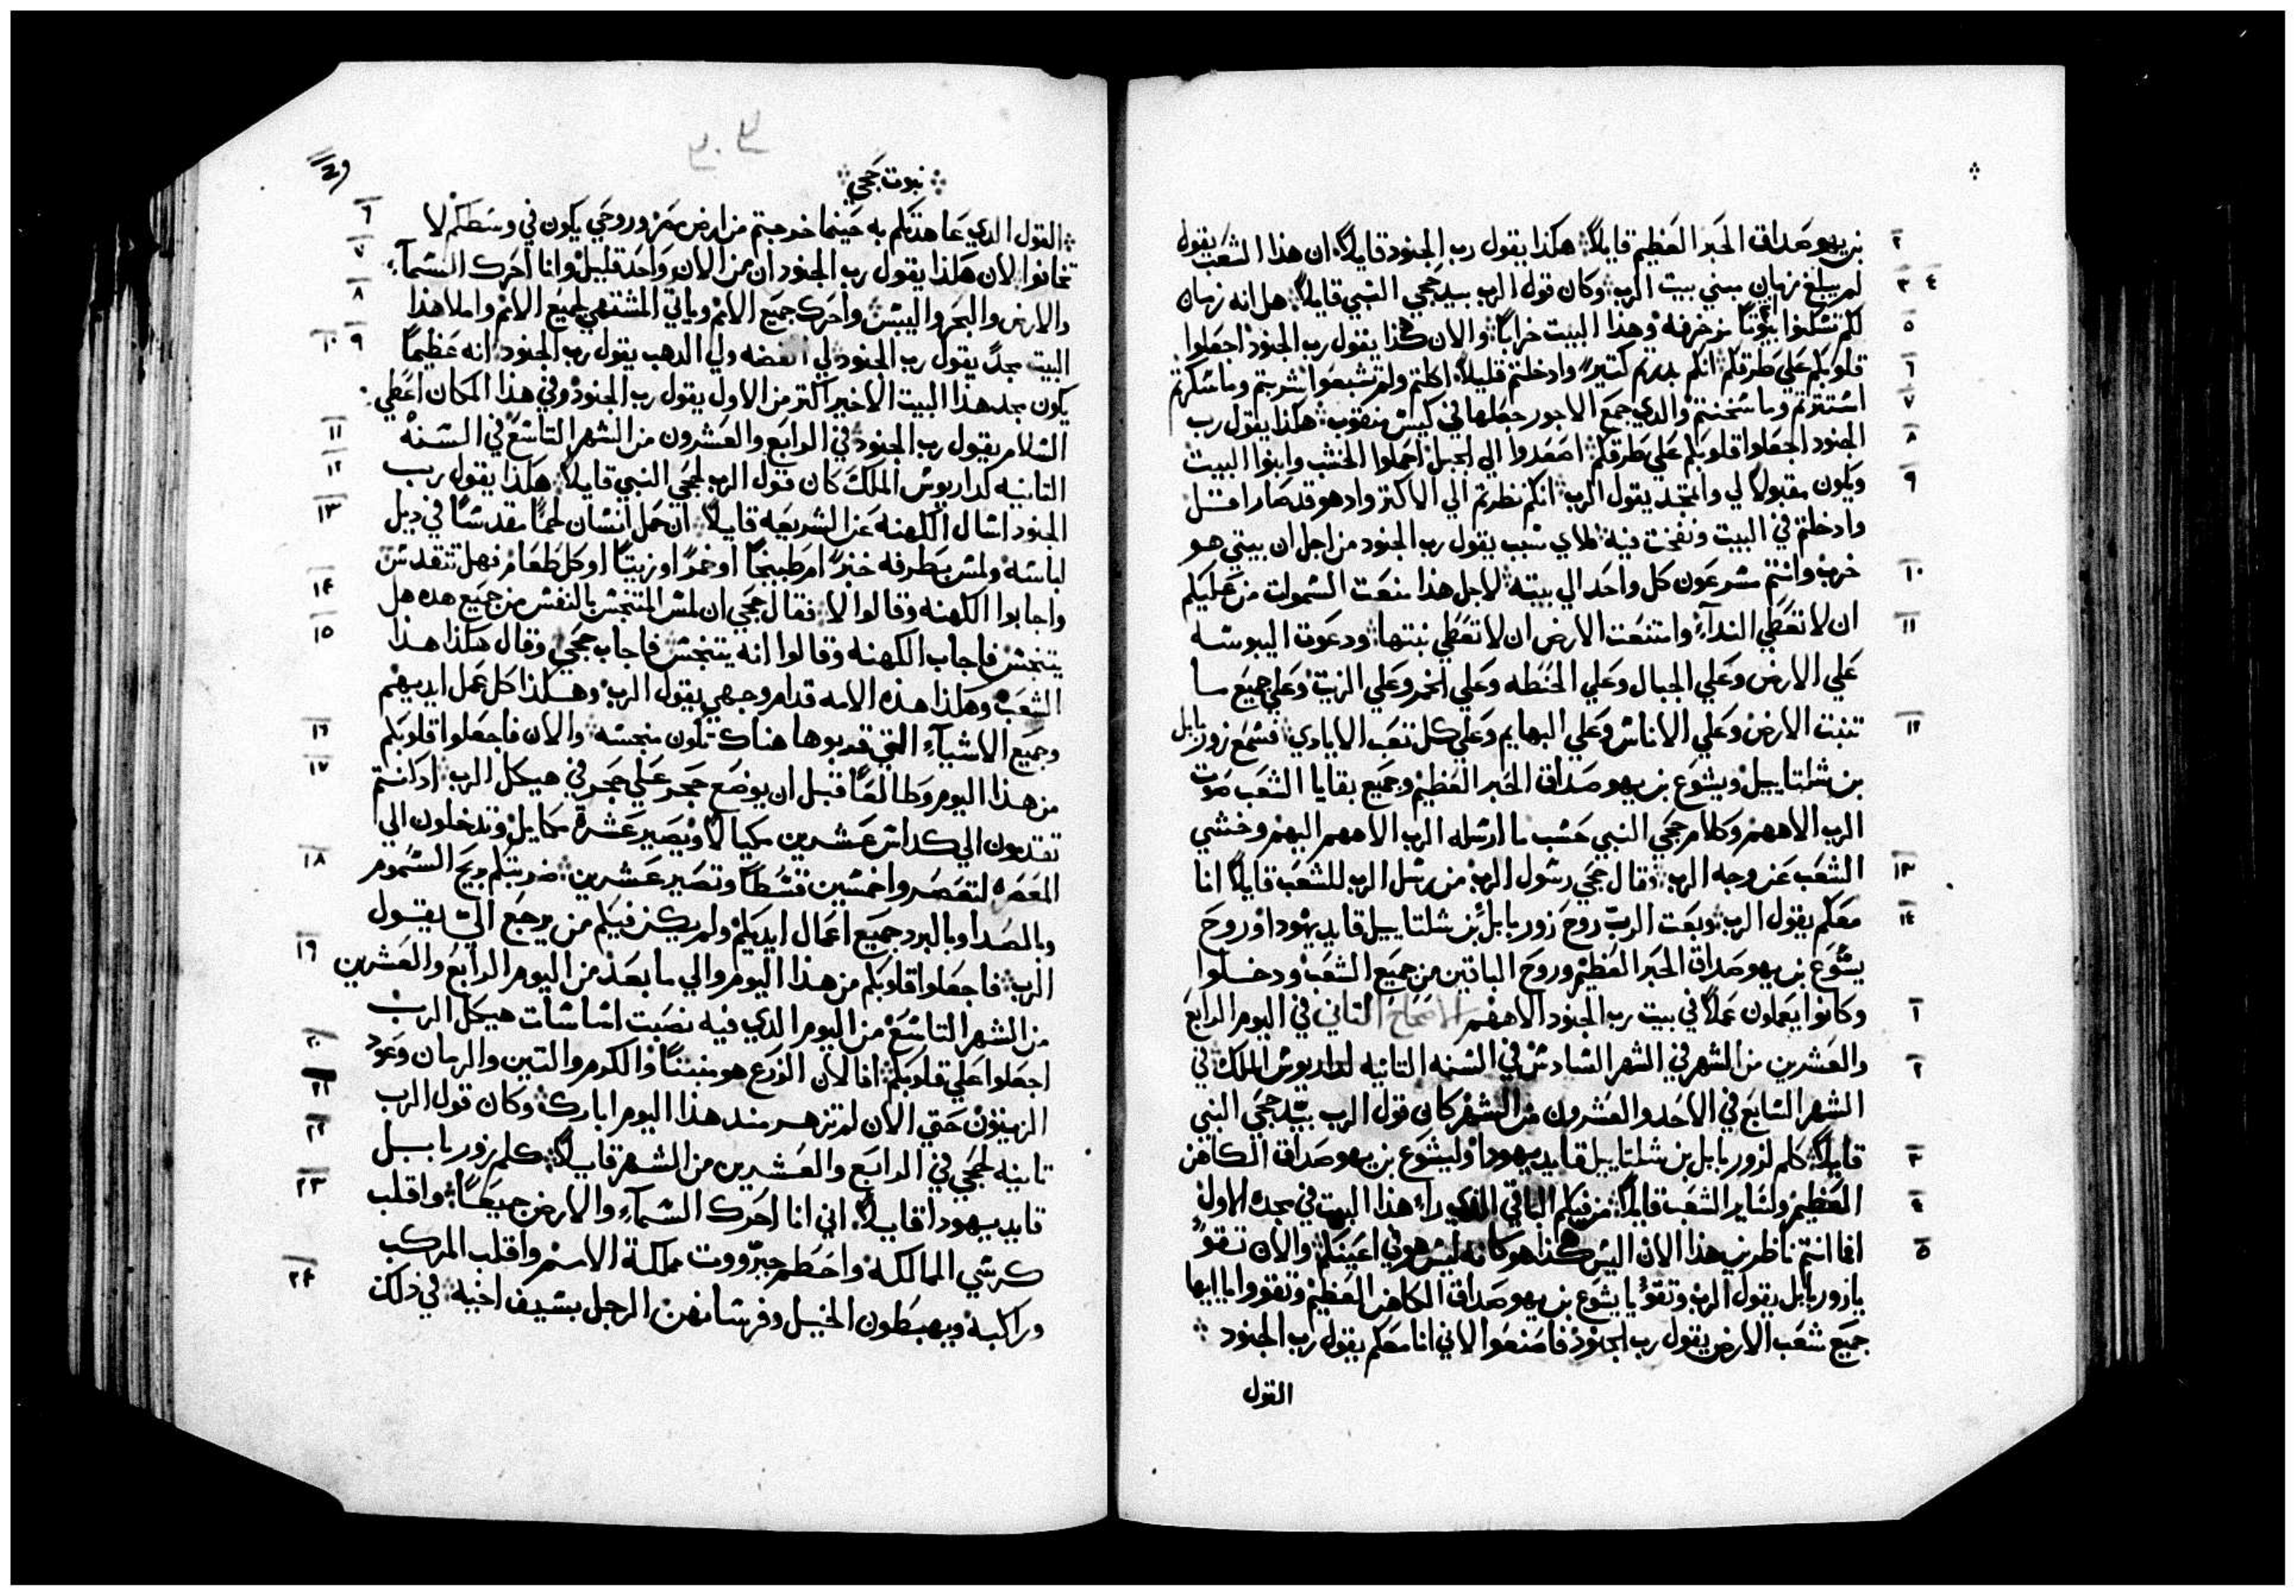 بن يهوصداق الحبر العظيم قايلاً هكذا يقول رب الجنود قايلاً ان هذا الشعب يقول ٢
لم يبلغ زمان مبني بيت الرب وكان قول الرب بيد حجي النبي قايلاً هل انه زمان ٣ ٤
لكم تسكنوا بيوتاً مزخرفه وهذا البيت خراباً والان هكذا يقول رب الجنود اجعلوا ٥
قلوبكم علي طرقكم انكم بدرتم كتير وادخلتم قليلاً اكلتم ولم تشبعوا شربتم وما سكرتم ٦
استترتم وما سخنتم والدي جمع الاجور جعلها في كيس منقوب هكذا يقول رب ٧
الجنود اجعلوا قلوبكم علي طرقكم اصعدوا الي الجبل احملوا الخشب وابنوا البيت ٨
ويكون مقبولا لي واتمجد يقول الرب انكم نظرتم الي الاكتر وادهو قد صار اقل ٩
وادخلتم في البيت ونفخت فيه لاي سبب يقول رب الجنود من اجل ان بيتي هو
خرب وانتم مسرعون كل واحد الي بيته لاجل هذا منعت السموات من عليكم ١٠
ان لا تعطي النداء وامتنعت الارض ان لا تعطي نبتها ودعوت اليبوسه ١١
علي الارض وعلي الجبال وعلي الحنطه وعلي الخمر وعلي الزيت وعلي جميع ما
تنبت الارض وعلي الاناس وعلي البهايم وعلي كل تعب الايادي فسمع زوربابل ١٢
بن شلتاييل ويشوع بن يهوصداق الحبر العظيم وجميع بقايا الشعب صوت
الرب الاههم وكلام حجي النبي حسب ما ارسله الرب الاههم اليهم وخشي
الشعب عن وجه الرب وقال حجي رسول الرب من رسل الرب للشعب قايلاً انا ١٣
معكم يقول الرب وبعت الرب روح زوربابل بن شلتاييل قايد يهودا وروح ١٤
يشوع بن يهوصداق الحبر العظيم وروح الباقين من جميع الشعب ودخلوا
وكانوا يعملون عملاً في بيت رب الجنود الاههم الاصحاح التاني في اليوم الرابع ١
والعشرين من الشهر في الشهر السادس في السنه التانيه لداريوش الملك في ٢
الشهر السابع في الاحد والعشرون من الشهر كان قول الرب بيد حجي النبي
قايلاً كلم لزوربابل بن شلتاييل قايد يهودا وليشوع بن يهوصداق الكاهن ٣
العظيم ولساير الشعب قايلاً من فيكم الباقي الذي راء هذا البيت في مجده الاول ٤
افما انتم ناظرين هذا الان اليس هكذا هو كانه ليس هو في اعينكم والان تقو ٥
يا زوربابل يقول الرب وتقو يا يشوع بن يهوصداق الكاهن العظيم وتقووا يا ايها
جميع شعب الارض يقول رب الجنود فاصنعوا لاني انا معكم يقول رب الجنود
القول
نبوت حجي
القول الدي عاهدتكم به حينما خرجتم من ارض مصر وروحي يكون في وسطكم لا ٦
تخافوا لان هكذا يقول رب الجنود ان من الان واحد قليل وانا احرك السماء ٧
والارض والبحر واليبس واحرك جميع الامم وياتي المشتهي لجميع الامم واملا هذا ٨
البيت مجداً يقول رب الجنود لي الفضه ولي الدهب يقول رب الجنود انه عظيماً ٩ ١٠
يكون مجد هذا البيت الاخير اكتر من الاول يقول رب الجنود وفي هذا المكان اعطي
السلام يقول رب الجنود في الرابع والعشرون من الشهر التاسع في السنه ١١
التانيه لداريوش الملك كان قول الرب لحجي النبي قايلاً هكذا يقول رب ١٢
الجنود اسال الكهنه عن الشريعه قايلاً ان حمل انسان لحماً مقدساً في ديل ١٣
لباسه ولمس بطرفه خبزاً ام طبيخاً او خمراً او زيتاً او كل طعام فهل تتقدس
واجابوا الكهنه وقالوا لا فقال حجي ان لمس المتنجس بالنفس من جميع هده هل ١٤
يتنجس فاجاب الكهنه وقالوا انه يتنجس فاجاب حجي وقال هكذا هذا ١٥
الشعب وهكذا هذه الامه قدام وجهي يقول الرب وهكذا كل عمل ايديهم
وجميع الاشياء التي قربوها هناك تكون منجسه والان فاجعلوا قلوبكم ١٦
من هذا اليوم وطالعاً قبل ان يوضع حجر علي حجر في هيكل الرب اد كنتم ١٧
تقدمون الي كداس عشرين مكيالاً ويصير عشرة مكاييل وتدخلون الي
المعصره لتعصروا خمسين قسطاً وتصير عشرين ضربتكم بريح السموم ١٨
وبالصدا وبالبرد جميع اعمال ايديكم ولم يكن فيكم من يرجع الي يقول
الرب فاجعلوا قلوبكم من هذا اليوم والي ما بعد من اليوم الرابع والعشرين ١٩
من الشهر التاسع من اليوم الدي فيه نصبت اساسات هيكل الرب
اجعلوا علي قلوبكم افا الان الزرع هو منبتاً والكرم والتين والرمان وعود ٢٠
الزيتون حتي الان لم تزهر مند هذا اليوم ابارك وكان قول الرب ٢١
تانيه لحجي في الرابع والعشرين من الشهر قايلاً كلم زوربابل ٢٢
قايد يهودا قايلاً اني انا احرك السماء والارض جميعاً واقلب ٢٣
كرسي الممالكه واحطم جبرووت مملكة الامم واقلب المركب
وراكبه ويهبطون الخيل وفرسانهن الرجل بسيف اخيه في ذلك ٢٤